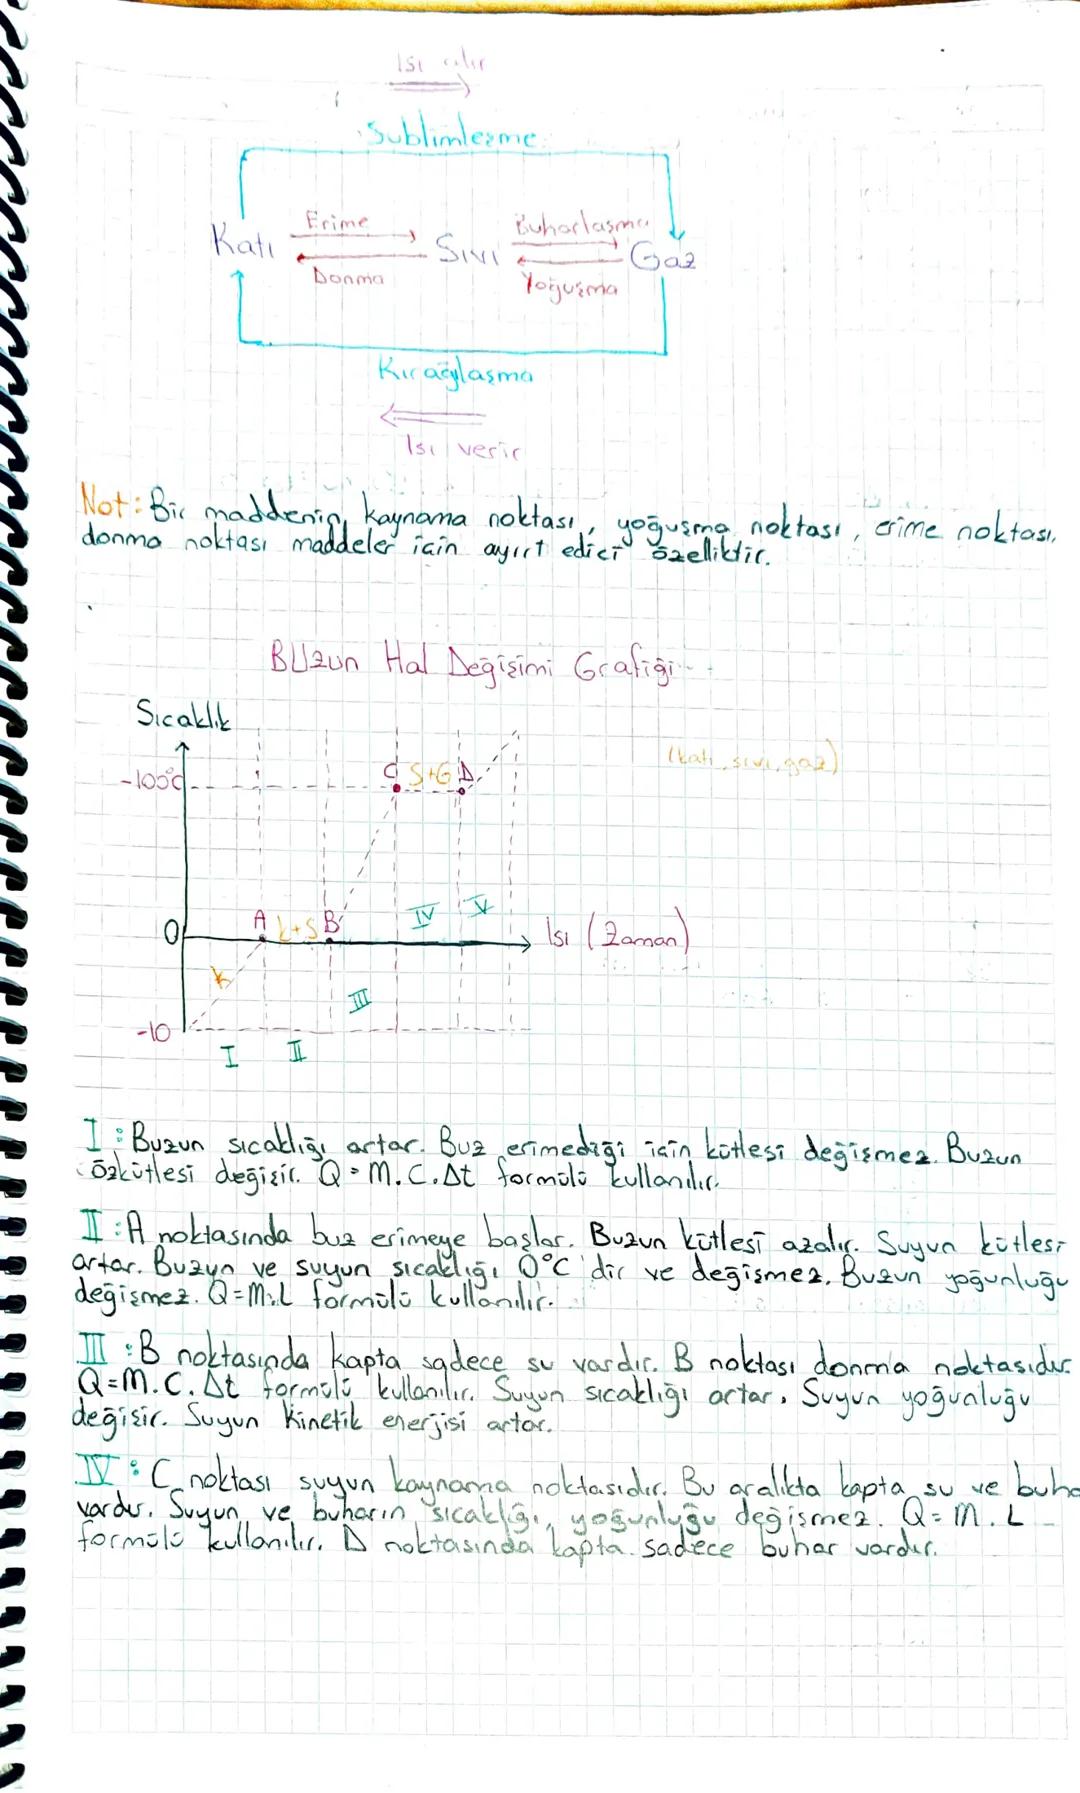 Isı alır
Sublimleşme
Katı Erime Sıvı Buharlaşma Gaz
Donma Yoğuşma
Kırağılaşma
Isı verir
Not: Bir maddenin, kaynama noktası, yoğuşma noktası, erime noktası,
donma noktası maddeler için ayırt edici özelliktir.
BUzun Hal Değişimi Grafiği
Sıcaklık
(katı, sıvı, gaz)
-100°C C S+G D
0 A k+S B IV V Isı (Zaman)
K
III
-10
I II
I: Buzun sıcaklığı artar. Buz erimediği için kütlesi değişmez. Buzun
özkütlesi değişir. Q=M.C.Δt formülü kullanılır.
II: A noktasında buz erimeye başlar. Buzun kütlesi azalır. Suyun kütlesi
artar. Buzun ve suyun sıcaklığı 0°C'dir ve değişmez. Buzun yoğunluğu
değişmez. Q=M.L formülü kullanılır.
III: B noktasında kapta sadece su vardır. B noktası donma noktasıdır.
Q=M.C.Δt formülü kullanılır. Suyun sıcaklığı artar, Suyun yoğunluğu
değişir. Suyun Kinetik enerjisi artar.
IV: C noktası suyun kaynama noktasıdır. Bu aralıkta kapta su ve buha
vardır. Suyun ve buharın sıcaklığı, yoğunluğu değişmez. Q=M.L
formülü kullanılır. D noktasında kapta sadece buhar vardır.